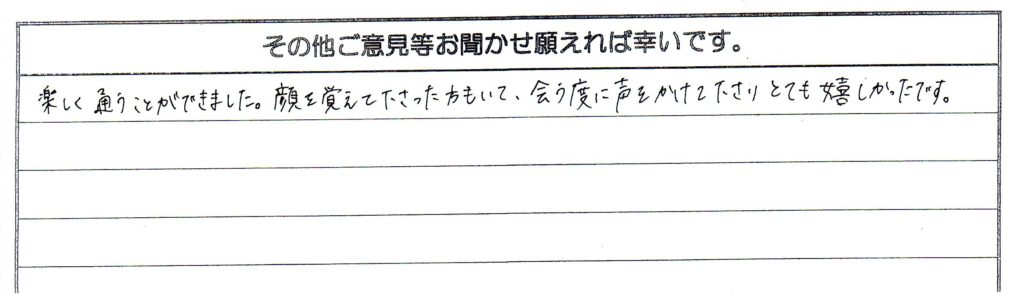 その他ご意見等お聞かせ願えれば幸いです。
楽しく通うことができました。顔を覚えて下さった方もいて、会う度に声をかけて下さりとても嬉しかったです。